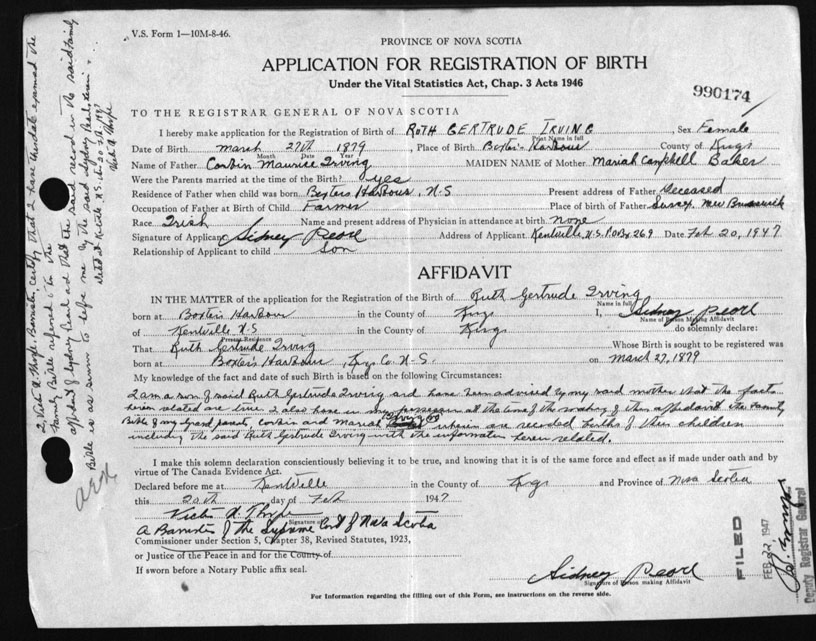 V.S. Form 1—10M-8-46.
PROVINCE OF NOVA SCOTIA
APPLICATION FOR REGISTRATION OF BIRTH
Under the Vital Statistics Act, Chap. 3 Acts 1946
990174
TO THE REGISTRAR GENERAL OF NOVA SCOTIA
I hereby make application for the Registration of Birth of RUTH GERTRUDE IRVING Sex Female
Print Name in full
Date of Birth March 27th 1879 Place of Birth Boxter's Harbour County of Kings
Month Date Year
Name of Father Corbin Maurice Irving MAIDEN NAME of Mother Mariah Campbell Baker
Were the Parents married at the time of the Birth? yes
Residence of Father when child was born Bexters Harbour, N.S Present address of Father deceased
Occupation of Father at Birth of Child Farmer Place of birth of Father Sussex, New Brunswick
Race Irish Name and present address of Physician in attendance at birth none
Signature of Applicant Sidney Pearl Address of Applicant Kentville, N.S. P.O. Bx 269 Date Feb 20, 1947
Relationship of Applicant to child Son
AFFIDAVIT
IN THE MATTER of the application for the Registration of the Birth of Ruth Gertrude Irving
Name in full
born at Boxters Harbour in the County of Kings I, Sidney Pearl
Name of Person Making Affidavit
of Kentville N.S in the County of Kings do solemnly declare:
Present Residence
That Ruth Gertrude Irving Whose Birth is sought to be registered was
born at Boxter's Harbour, Kings Co. N.S. on March 27, 1879
My knowledge of the fact and date of such Birth is based on the following Circumstances:
I am a son of said Ruth Gertrude Irving and have been advised by my said mother that the facts
herein related are true. I also have in my possession at the time of the making of this affidavit the Family
Irving
Bible of my Grand parents, Corbin and Mariah wherein are recorded births of their children
including the said Ruth Gertrude Irving with the information herein related.
I make this solemn declaration conscientiously believing it to be true, and knowing that it is of the same force and effect as if made under oath and by
virtue of The Canada Evidence Act.
Declared before me at Kentville in the County of Kings and Province of Nova Scotia
this 20th day of Feb 1947
Victor N. Thorpe
Signature of
A Barrister of the Supreme Court of Nova Scotia
Commissioner under Section 5, Chapter 38, Revised Statutes, 1923,
or Justice of the Peace in and for the County of
If sworn before a Notary Public affix seal.
Sidney Pearl
Signature of Person making Affidavit
For Information regarding the filling out of this Form, see instructions on the reverse side.
I, Victor N. Thorpe, Barrister, certify that I have this date examined the
Family Bible referred to in the
affidavit of Sydney Pearl and that the said record in the said Family
Bible is as sworn to before me by the said Sydney Pearl.
dated at Kentville N.S. this 20 Feb. 1947
Victor N. Thorpe
FILED
FEB. 22, 1947
Deputy Registrar General